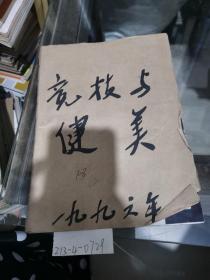 竞技与
健美
一九九六年
213-4-0729